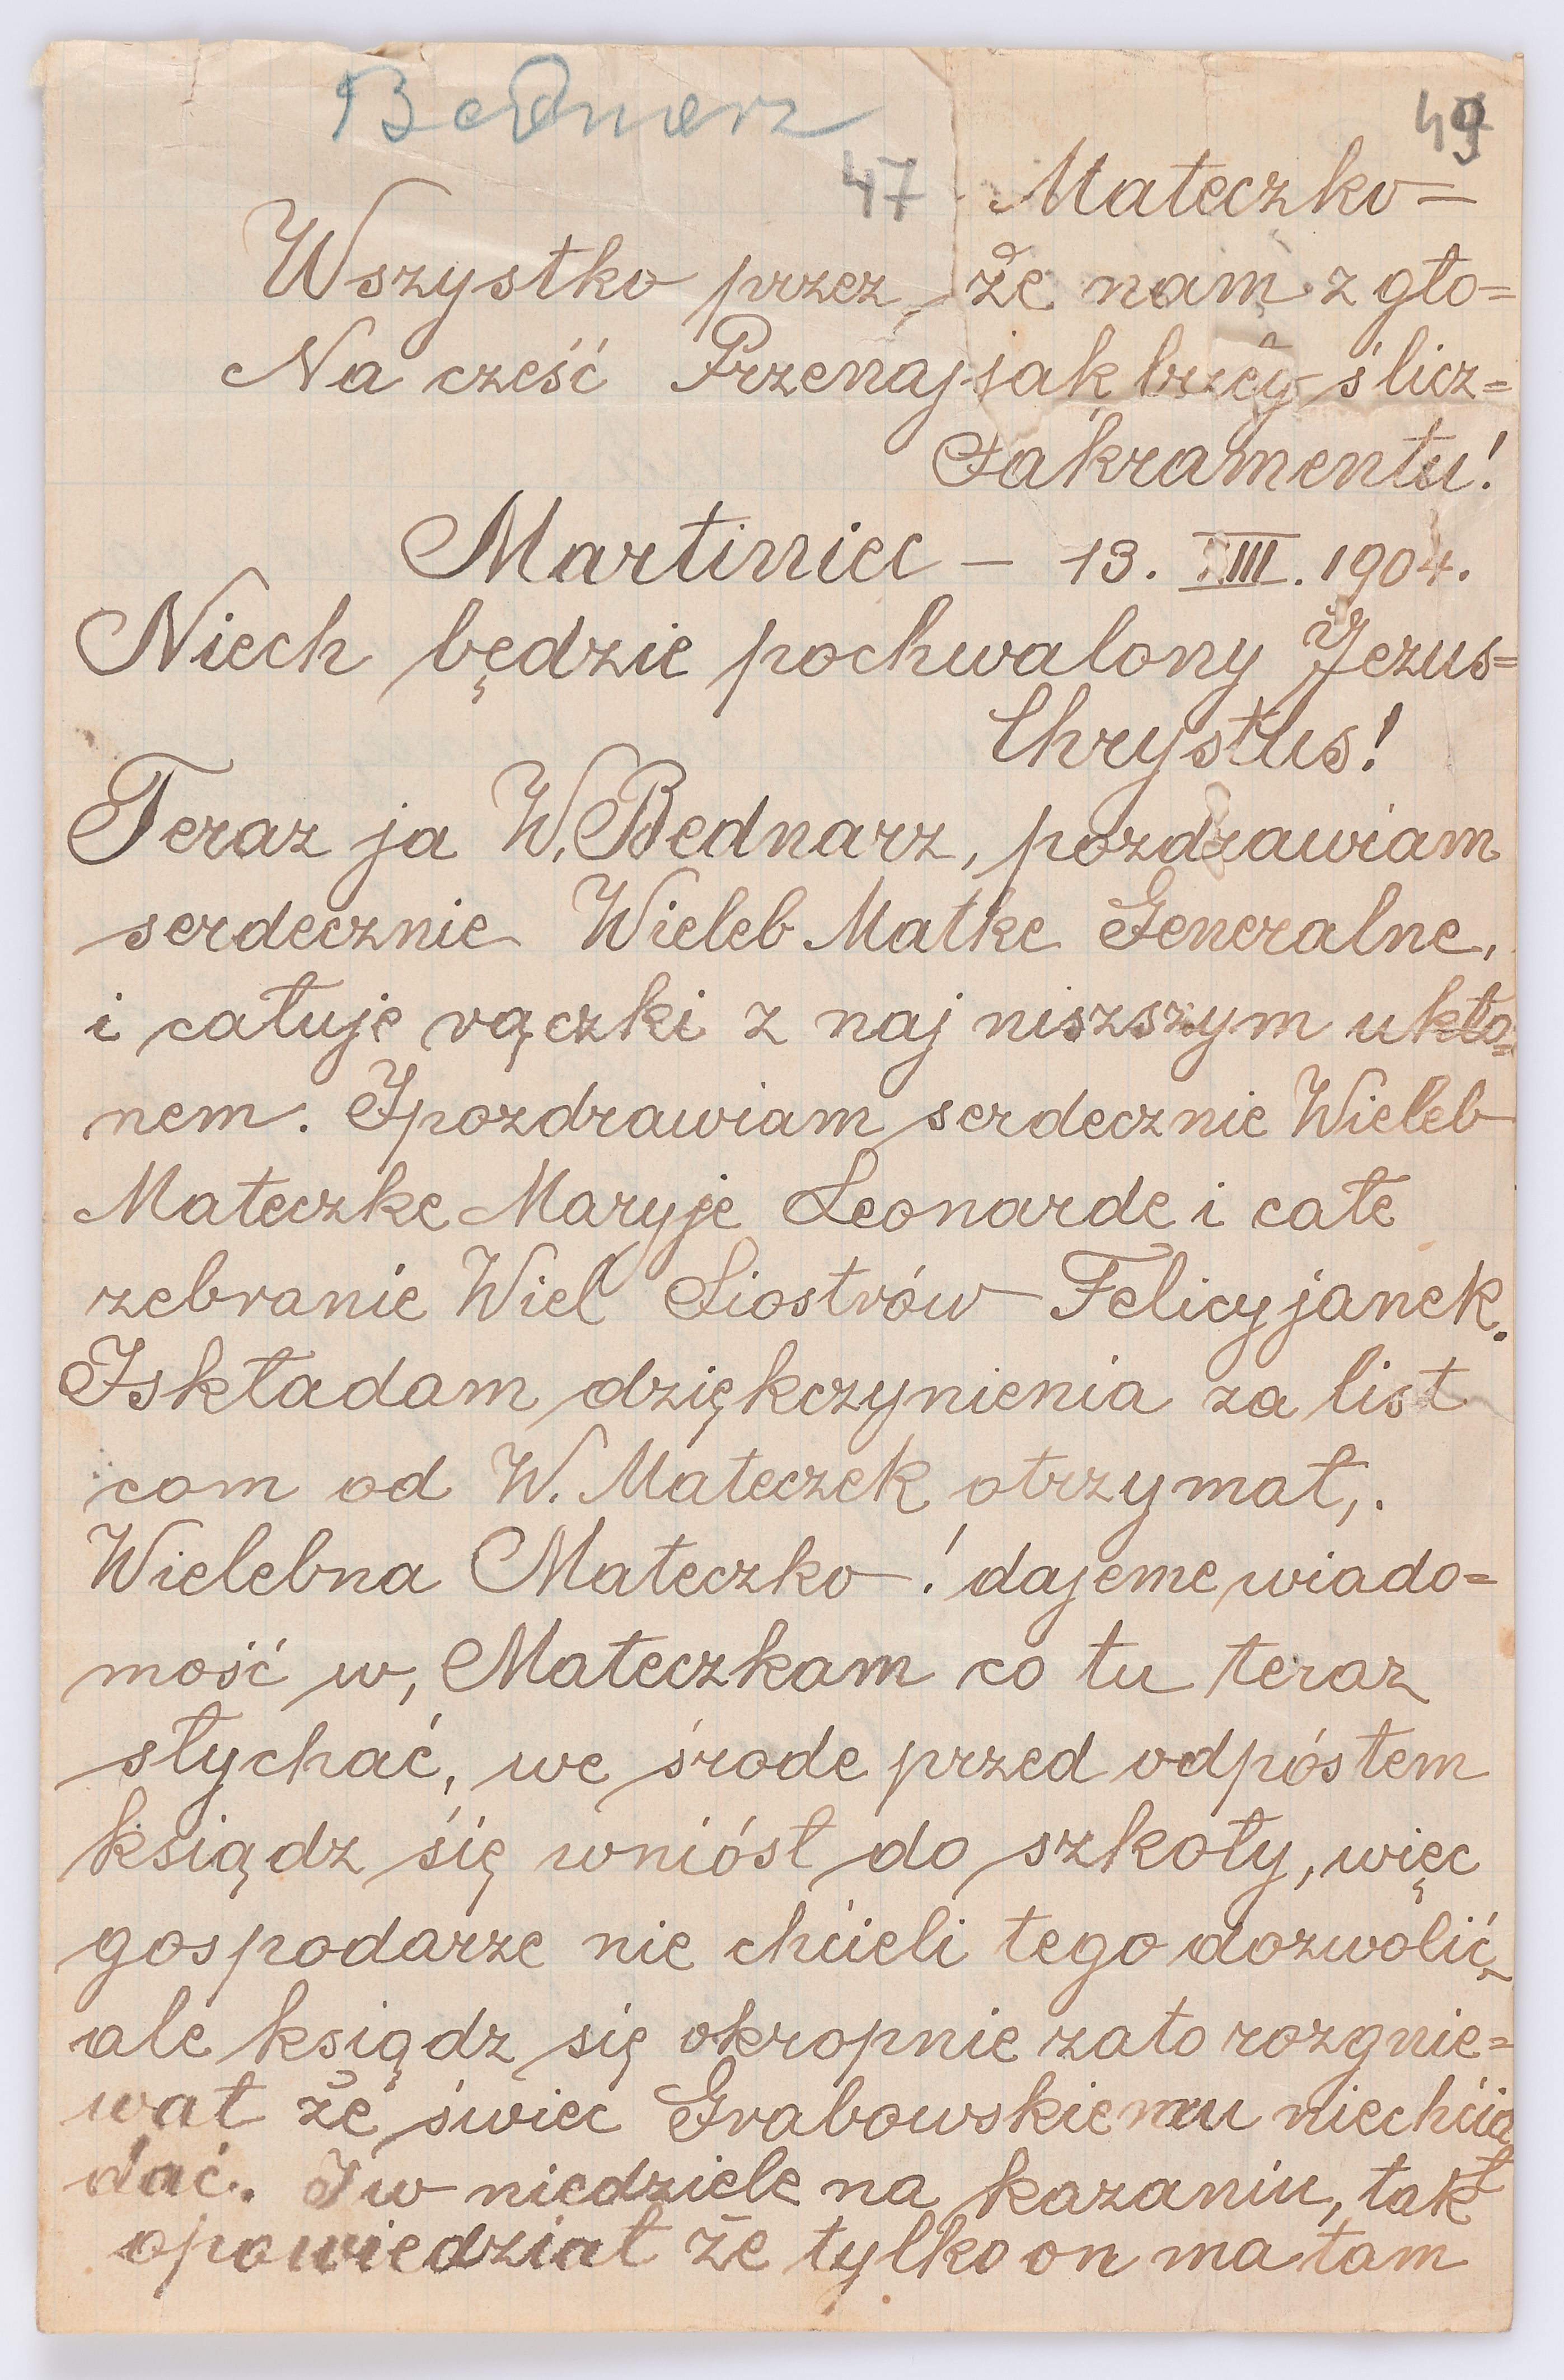 Bednarz
49
47 Mateczko=
Wszystko przez, że nam z gło=
Na cześć Przenaj jak ślicz=
Sakramentu!
Martiniec – 13. III. 1904.
Niech będzie pochwalony Jezus=
Chrystus!
Teraz ja W, Bednarz, pozdrawiam
serdecznie Wieleb Matke Generalne,
i całuje rączki z naj niszszym ukło=
nem. Ipozdrawiam serdecznie Wieleb
Mateczke Maryje Leonarde i całe
zebranie Wiel Siostrów Felicyjanek.
Iskładam dziękczynienia za list
com od W. Mateczek otrzymał,.
Wielebna Mateczko! dajeme wiado=
mość w, Mateczkam co tu teraz
słychać, we środe przed odpóstem
ksiądz się wniósł do szkoły, więc
gospodarze nie chcieli tego dozwolić,
ale ksiądz się okropnie zato rozgnie=
wał że świec Grabowskiemu niechciał
dać. I w niedziele na kazaniu, tak
opowiedział że tylko on ma tam